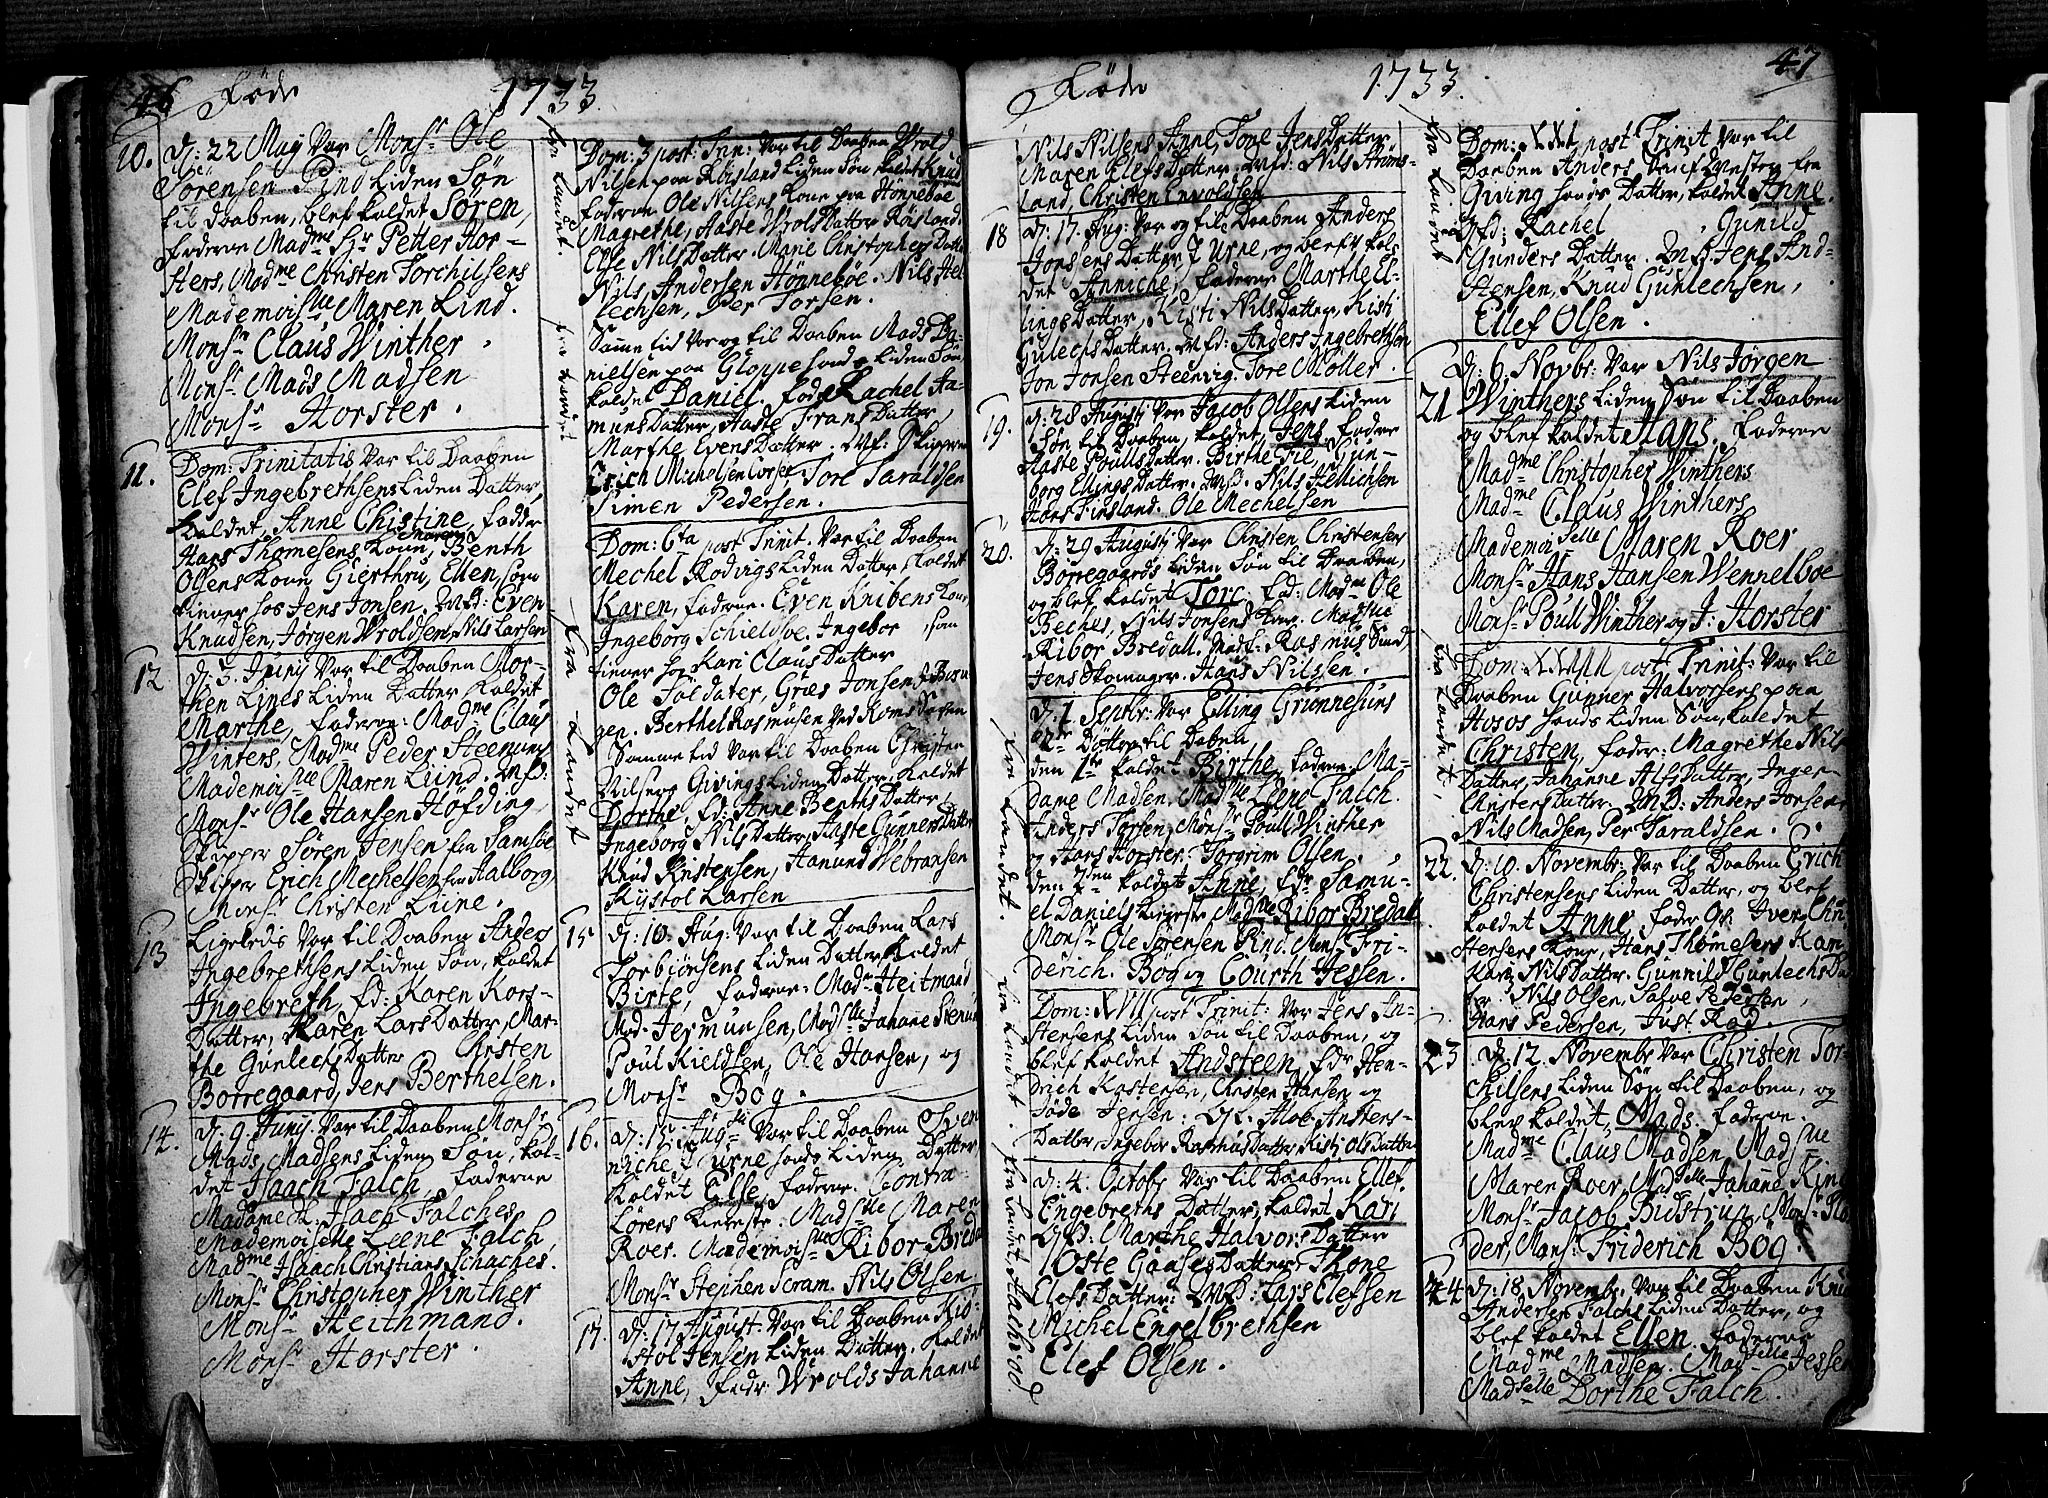 46 Føde 1733
10. D: 22 May Var Monsr Ole
Sörensen Pind Liden Søn
til Daaben, blef kaldet Sören,
faderne Madme Hr Petter Hor-
sters, Madme Christen Torchilsens
Mademoiselle Maren Lind.
Monsr Claus Winther
Monsr Mads Madsen
Monsr Horster.
11. Dom: Trinitatis Var til Daaben
Elef Ingebrethsens Liden Datter,
kaldet, Anne Christine, fadder
Hans Thomesens Kone, Maren Benth
Olsens Kone Gierthru, Ellen, som
tiener hos Jens Jonsen. Mf: Even
Knudsen, Jörgen Wroldsen, Nils Larsen
12 D: 3. Junij Var til Daaben Mor-
then Lines Liden Datter kaldet
Marthe, faderne: Madme Claus
Winters, Madme Peder Steenings
Mademoiselle Maren Lund. Mf:
Monsr Ole Hansen Höfding,
Skipper Sören Jensen fra Samsöe
Skipper Erich Mechelsen fra Aalborg,
Monsr Christen Lune.
13 Ligeledis Var til Daaben Anders
Ingebrethsens Liden Søn, kaldet
Ingebreth, fd: Karen Kors-
Datter, Karen Lars Datter, Mar-
the Gunlechs Datter Chrsten
Borregaard, Jens Berthelsen.
14. D: 9. Junij. Var til Daaben Monsr
Mads Madsens Liden Søn, kal-
det Isaach Falch, faderne
Madame H. Isach Falches
Mademoiselle Leene Falch,
Madme Isaach Christians Schaches.
Monsr Christopher Winther
Monsr Heithmand.
Monsr Horster.
fra Landet.
Dom: 3 post: Trin: Var til Daaben Wrold
Nilsen paa Röisland Liden Søn kaldet Knud
faderne Ole Nilsens Kone paa Hönneböe
Magrethe, Aaste Wrolds Datter Röisland
Else Nils Datter. Marie Christophers Datter
Nils, Andersen Hönneböe. Nils Hel-
lechsen, Per Torsen.
Samme tid Var og til Daaben Mads Da-
nielsen paa Gloppe hands Liden Søn,
kaldet Daniel. fad: Rachel Aa-
munds Datter, Aaste Frans Datter,
Marthe Evens Datter. Mf: Skipperen
Erich Michelsen Corser, Tore Taraldsen
Simen Pedersen.
Dom: 6ta post Trinit. Var til Daaben
Mechel Rodvigs Liden Datter, kaldet
Karen, faderne. Even Knibens Kone
Ingeborg Schieldsoe. Ingebor , som
tiener hos Kari Claus Datter
Ole Soldater, Gres Jonsen
gen. Berthel Rasmusen Ved
fra Landet
Samme tid Var til Daaben Christen
Nilsens Givings Liden Datter, kaldet
Dorthe, fd: Anne Benths Datter,
Ingeborg Nils Datter, Aaste Gunners Datter
Knud Kristensen, Aamund Webransen
Kystol Larsen
15 D: 10. Aug: Var til Daaben Lars
Torbiönsens Liden Datter kaldet
Birte, faderne: Madme Heitmand
Mad. Jermunsen, Madselle Jahane
Poul Kieldsen, Ole Hansen, og
Monsr Bög.
16. D: Augsti Var til Daaben Sven
hands Liden Datter
kaldet Else, faderne. Contra-
lörers kiereste: Madselle Maren
Roer. Mademoiselle Ribor Bredal
Monsr Stephen Scram. Nils Olsen
17. D: 17 August. Var til Daaben Kiö-
stol Jensen Liden Datter. kaldet
Anne, fadr: Wrolds Jahanne
Føde 1733. 47
Nils Nilsens Anne, Tone Jens Datter
Maren Elefs Datter. Mfd: Nils Ströms-
land, Christen Envoldsen
18 D: 17. Aug: Var og til Daaben Anders
Jonsens Datter, og blef kal-
det Anniche, faderne Marthe El-
lings Datter, Kisti Nils Datter, Kisti
Gulechs Datter. Mfd: Anders Ingebrethsen
Jon Jonsen Steenvig. Tore Möller.
19. D: 28 Augusti Var Jacob Olsens Liden
Søn til Daaben, kaldet Jens fadre
Aaste Poulls Datter. Birthe Fie, Gun-
borg Ellings Datter. Mfd. Nils Michsen
Hans Finsland. Ole Mechelsen
20. D: 29 Augusti Var Christen Christensen
Borregaards Liden Søn til Daaben,
og blef kaldet Torc. fad: Madme Ole
Beches, Nils Jonsens Kone. Madselle
Ribor Bredall. Madf: Rasmus Smed,
Jens Skomager. Hans Nilssen.
D: 7 Septbr: Var Elling Grönnesuns
2de Dötter til Daben
den 1te kaldet Birthe, faderne. Ma-
dame Madsen, Madselle Leene Falch.
Anders Torsen, Monsr Poull Winther
og Hans Horster. Torgrim Olsen.
den 2den kaldet Anne, fdr Samu-
el Daniels kiereste Madselle Ribor Bredall
Monsr Ole Sörensen Pind. Monsr Fri-
derich. Bög og Courth Jessen.
Dom: XVII post Trinit: Var Jens An-
stensens Liden Søn til Daaben, og
blef kaldet Andsteen, fdr Hen-
drich Kastensen, Christen Hansen og
Jöde Jensen: Qf. Aloe Anstens-
Datter, Ingebor Rasmus Datter Kisti Ols Datter
D: 4. Octobr Var til Daaben Ellef.
Engebretens Datter, kaldet Kari
Qf. Marthe Halvors Datter
Oste Gaases Datter, Thone
Elefs Datter: Mf: Lars Elefsen
Michel Engelbrethsen
Elef Olsen.
fra Landet.
Dom: XXI post Trinit Var til
Daaben Anders fra
Giving hands Datter, kaldet Anne.
Qfd; Rachel , Gunild
Gunders Datter. Mf: Jens And-
stensen, Knud Gunlechsen,
Ellef Olsen.
21 D: 6. Novbr: Var Nils Jörgen
Winthers Liden Søn til Daaben
og blef kaldet Hans. faderne
Madme Christopher Winthers
Madme Claus Winthers
Mademoiselle Maren Roer
Monsr Hans Hansen Wennelboe
Monsr Poull Winther og J: Horster
fra Landet,
Dom: post Trinit: Var til
Daaben Gunner Halvorsens paa
Hosos hands Liden Søn, kaldet
Christen, fader: Magrethe Nils
Datter, Jahanne Alfs Datter, Inger
Chrstens Datter. Mf: Anders Jonsen
Nils Madsen, Per Taraldsen.
22. D: 10. Novembr: Var til Daaben Erich
Christensens Liden Datter, og blef
kaldet Anne, fader Qv. Iver Chri-
stensens Kone, Hans Thomesens Karen
Kari Nils Datter. Gunnild Gunlechs Dat-
ter: Nils Olsen, Salve Pedersen,
Hans Pedersen, Just Rad.
23 D: 12. Novembr Var Christen Tor-
chilsens Liden Søn til Daaben, og
blev kaldet, Mads. faderne.
Madme Claus Madsen, Madselle
Maren Roer, Madselle Jahane
Monsr Jacob Bidstrup, Monsr
der, Monsr Friderich Bög.
24 D: 18. Novembr. Var til Daaben Knud
Andersen Falchs Liden Datter, og
blef kaldet Ellen. faderne
Madme Madsen. Madselle Jessen
Madselle Dorthe Falch.